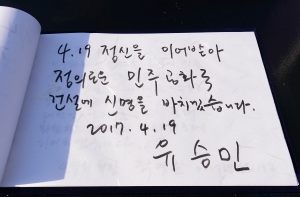 4.19 정신을 이어받아
정의로운 민주공화국
건설에 신명을 바치겠습니다.
2017. 4. 19
유승민